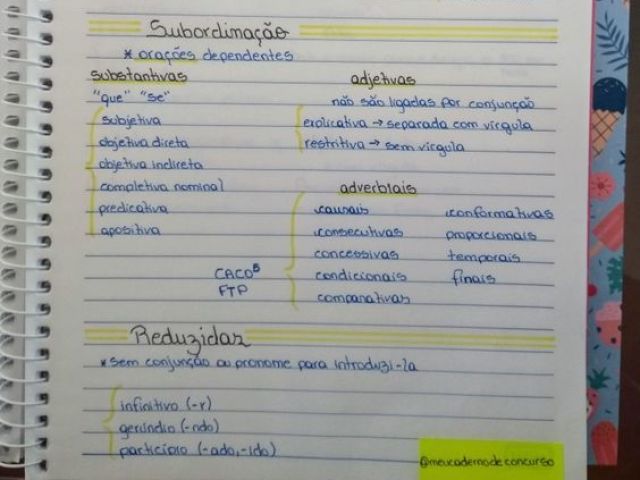 Subordinação
* orações dependentes
substantivas
"que" "se"
subjetiva
objetiva direta
objetiva indireta
completiva nominal
predicativa
apositiva
adjetivas
não são ligadas por conjunção
explicativa → separada com vírgula
restritiva → sem vírgula
adverbiais
CACO⁵
FTP
causais
consecutivas
concessivas
condicionais
comparativas
conformativas
proporcionais
temporais
finais
Reduzidas
* sem conjunção ou pronome para introduzi-la
infinitivo (-r)
gerúndio (-ndo)
particípio (-ado, -ido)
@meucadernodeconcurso